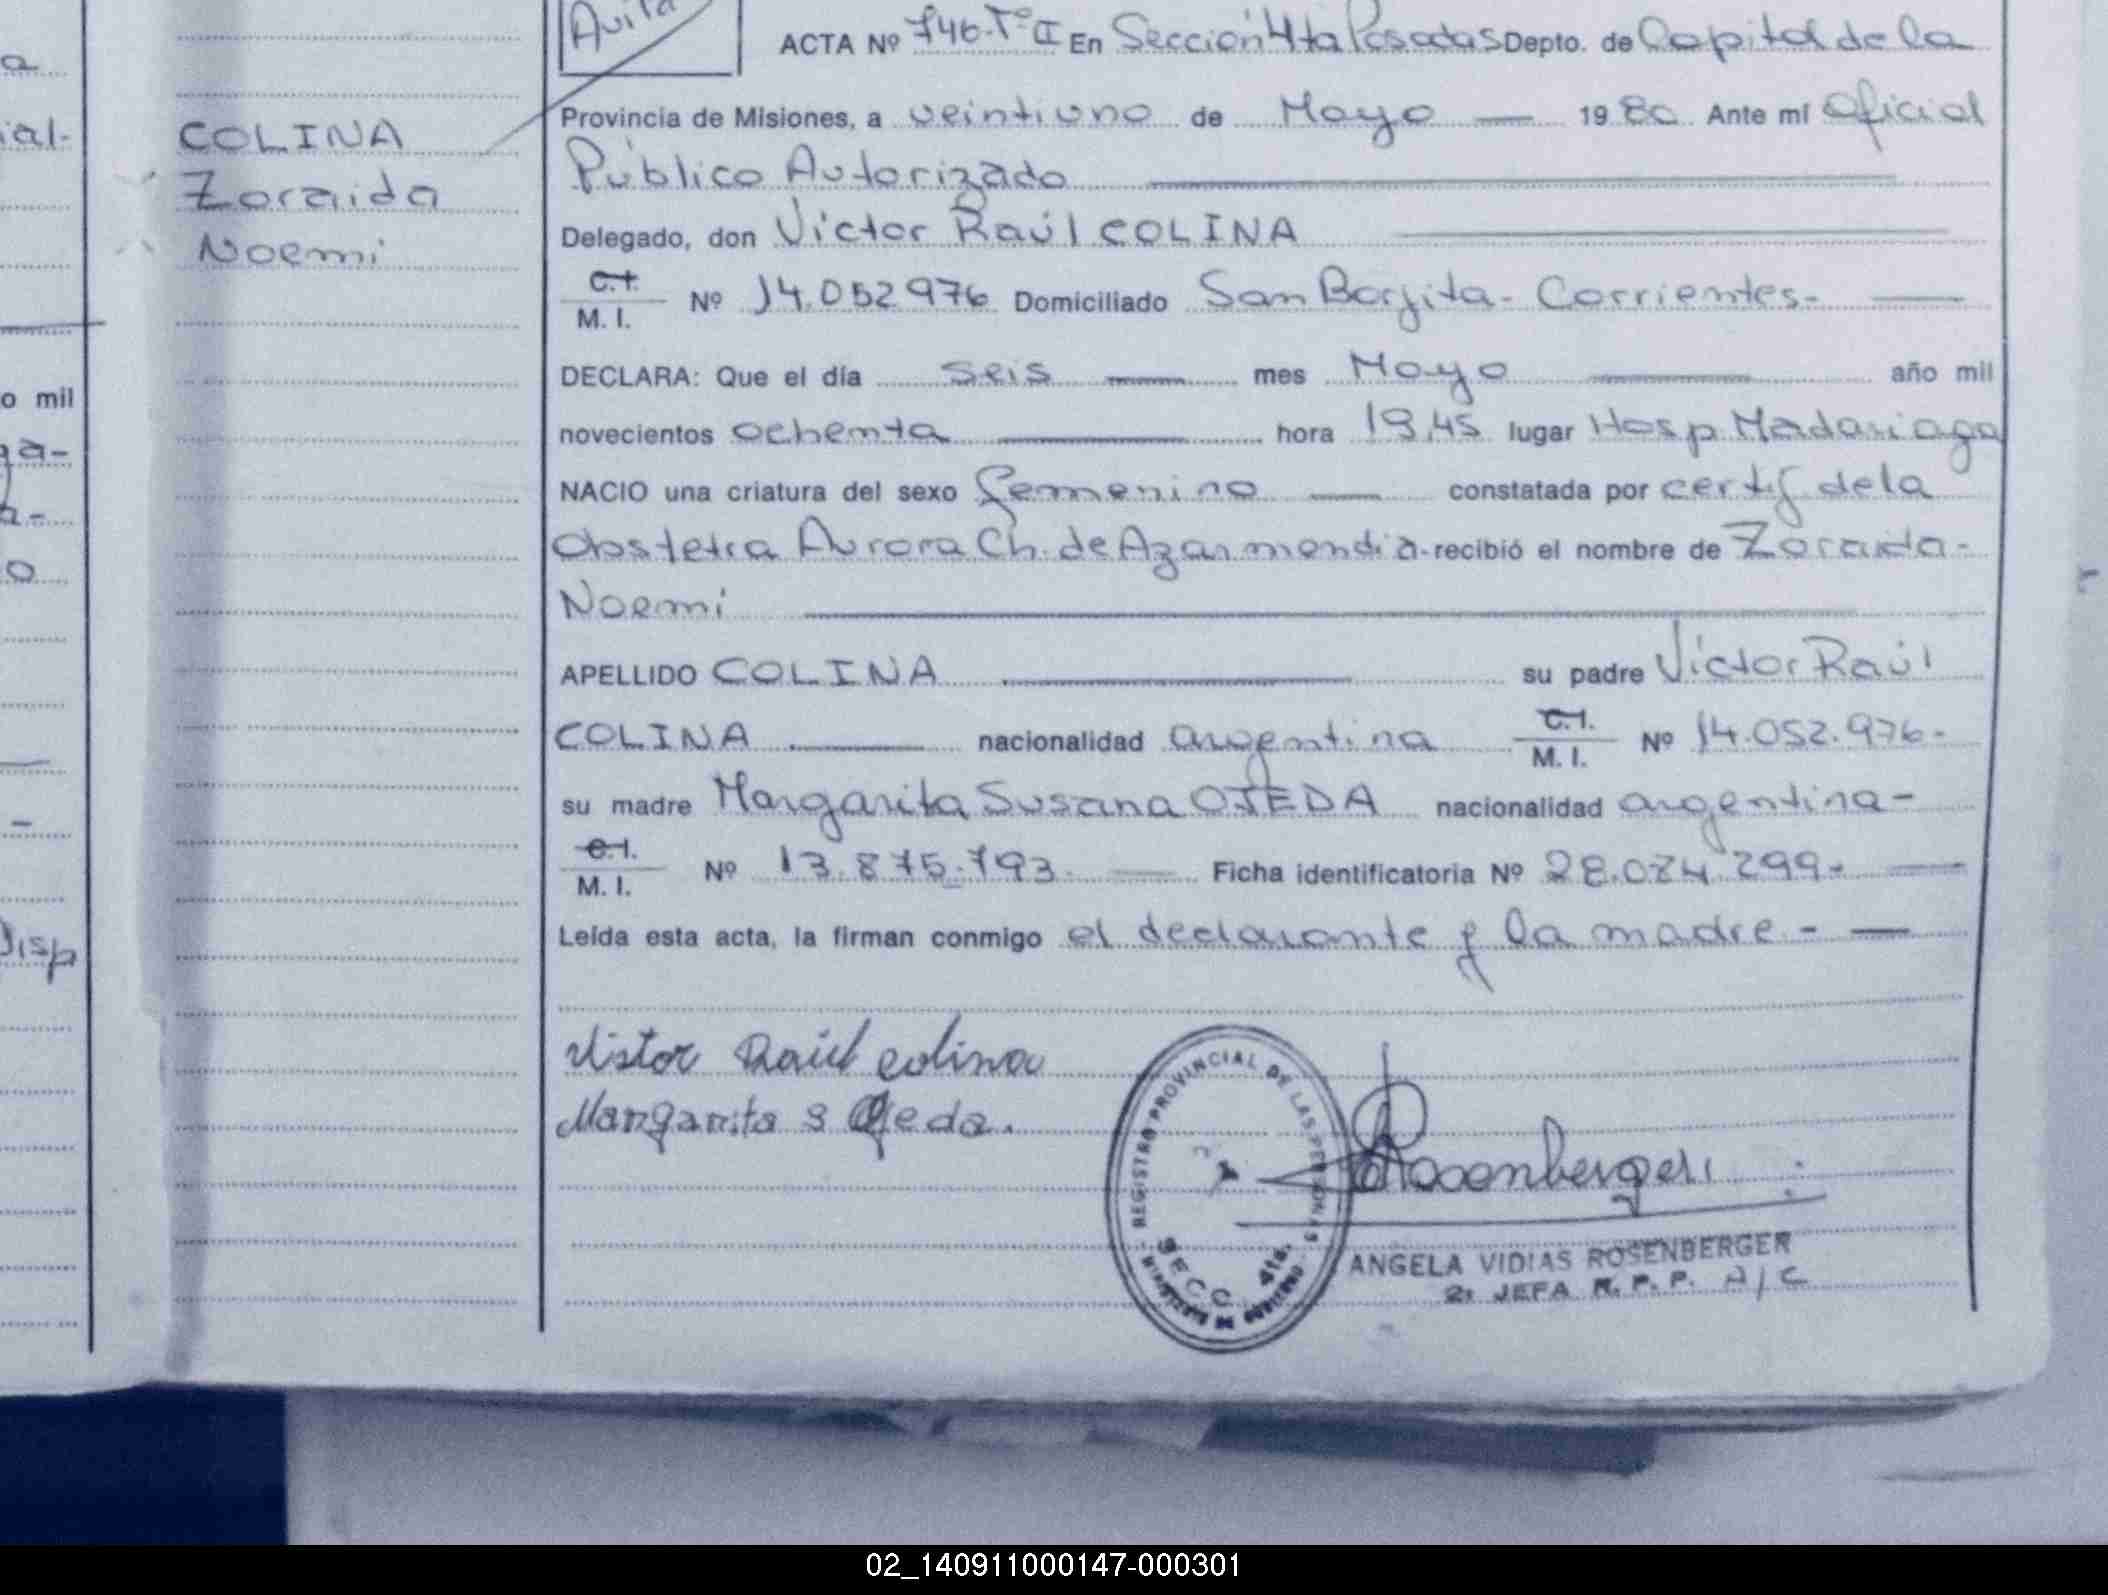 a
ial-
o mil
ga-
a-
o
Disp
COLINA
Zoraida
Noemi
Avila
ACTA Nº 746-Tº II En Sección 4ta Posadas Depto. de Capital de la
Provincia de Misiones, a veintiuno de Mayo — 1980 Ante mí Oficial
Público Autorizado
Delegado, don Víctor Raúl COLINA
C.I.
M. I. Nº 14.052.976 Domiciliado San Borjita - Corrientes -
DECLARA: Que el día seis — mes Mayo — año mil
novecientos ochenta — hora 19,45 lugar Hosp Madariaga
NACIO una criatura del sexo femenino — constatada por certif de la
Obstetra Aurora Ch. de Azarmendia - recibió el nombre de Zoraida -
Noemi
APELLIDO COLINA — su padre Víctor Raúl
COLINA — nacionalidad argentina C.I.
M. I. Nº 14.052.976-
su madre Margarita Susana OJEDA nacionalidad argentina -
C.I.
M. I. Nº 13.875.793 — Ficha identificatoria Nº 28.074.299- —
Leída esta acta, la firman conmigo el declarante y la madre - —
Vistor Raúl Colina
Margarita S Ojeda.
REGISTRO PROVINCIAL DE LAS PERSONAS
SECC. 4ta.
MINISTERIO DE GOBIERNO
Rosenberger
ANGELA VIDIAS ROSENBERGER
2: JEFA R. P. P. A/C
02_140911000147-000301